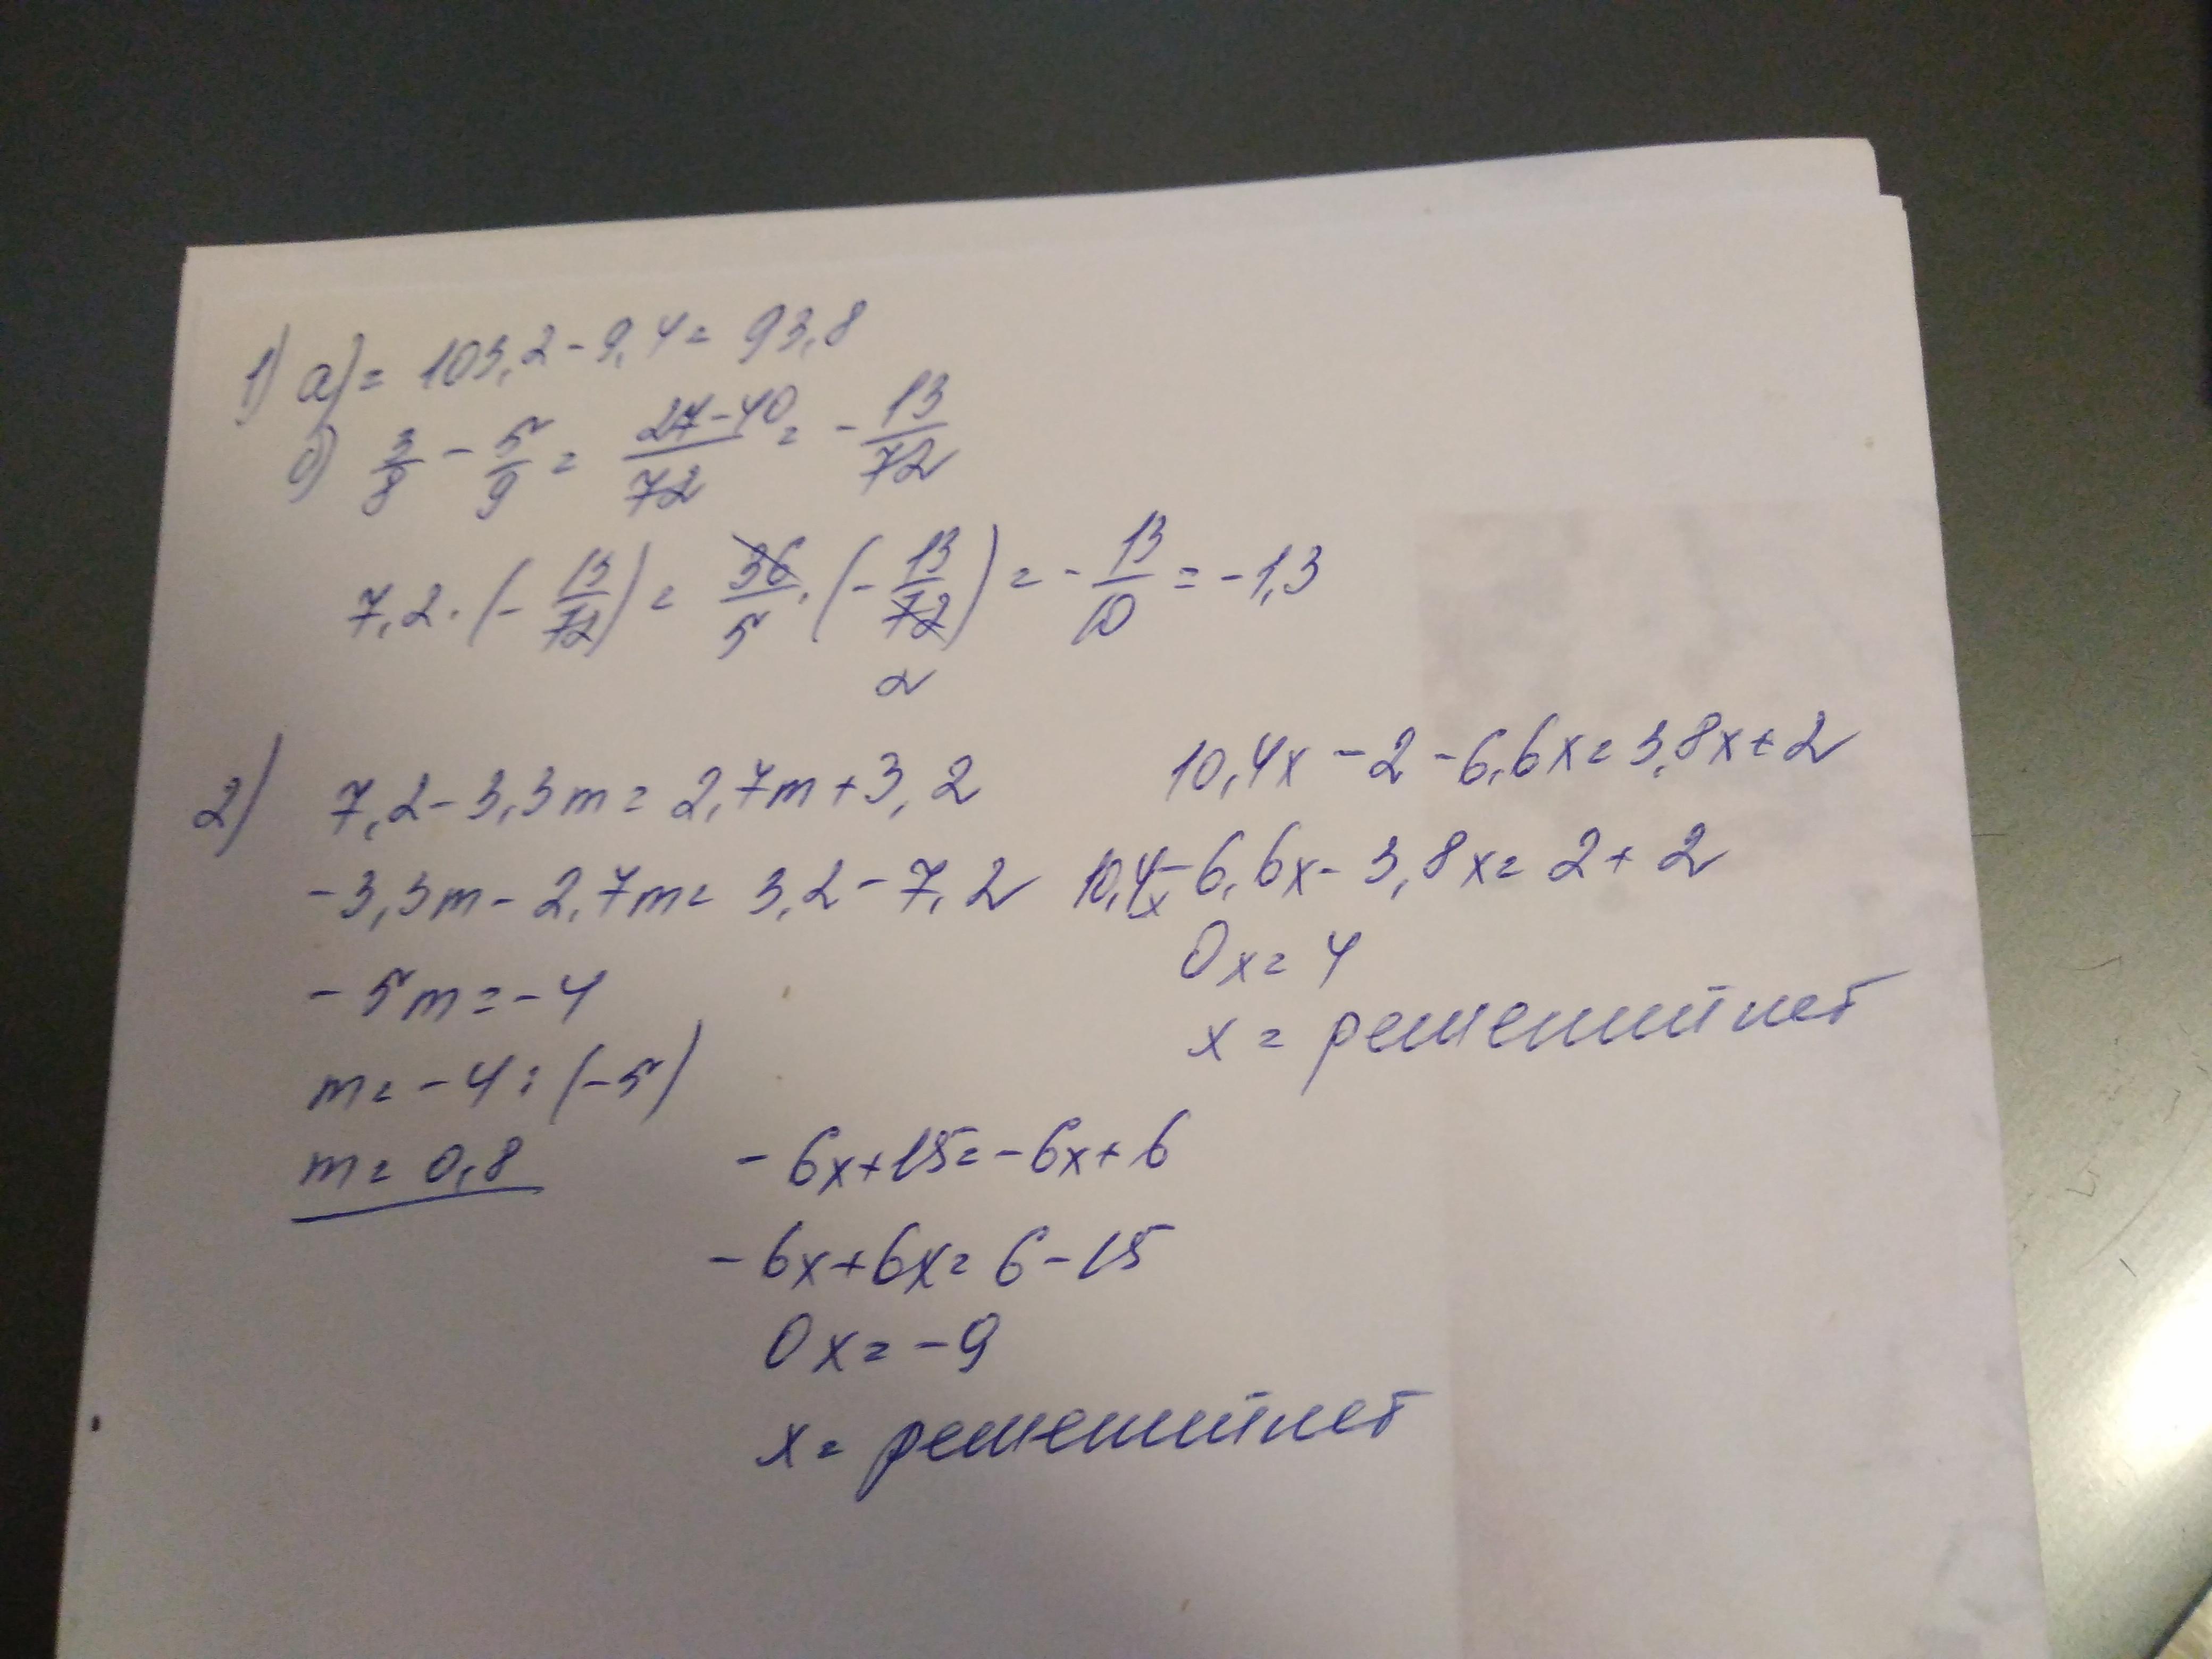 1) а) = 103,2 - 9,4 = 93,8
б) 3/8 - 5/9 = 27-40/72 = - 13/72
7,2 · (- 13/72) = 36/5 · (- 13/72) = - 13/10 = -1,3
2
2) 7,2 - 3,3m = 2,7m + 3,2
-3,3m - 2,7m = 3,2 - 7,2
- 5m = -4
m = -4 : (-5)
m = 0,8
10,4x - 2 - 6,6x = 3,8x + 2
10,4x - 6,6x - 3,8x = 2 + 2
0x = 4
x = решений нет
- 6x + 15 = - 6x + 6
- 6x + 6x = 6 - 15
0x = - 9
x = решений нет